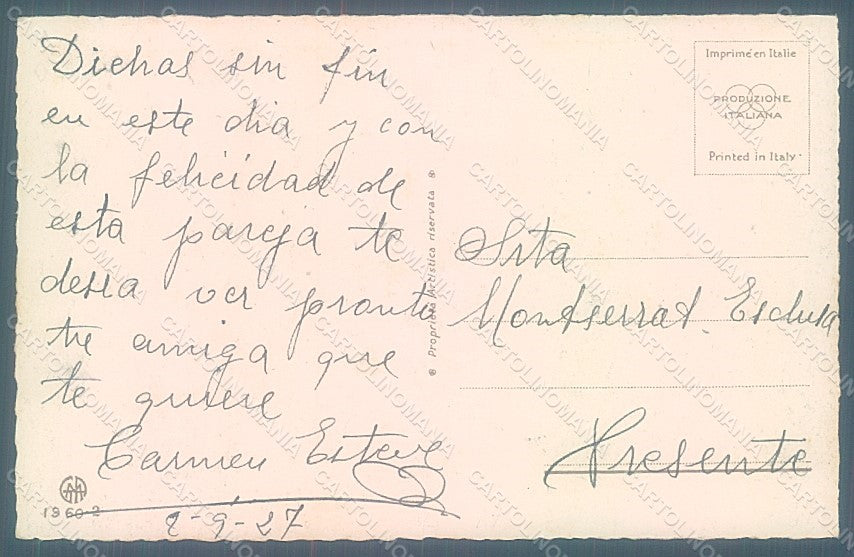 Dichas sin fin
en este dia y con
la felicidad de
esta pareja te
desea ver pronto
tu amiga que
te quiere
Carmen Esteve
2-9-27
1960-2
Proprietà Artistica riservata
Imprimé en Italie
PRODUZIONE
ITALIANA
Printed in Italy
Srta
Montserrat Esclusa
Presente
CARTOLINOMANIA